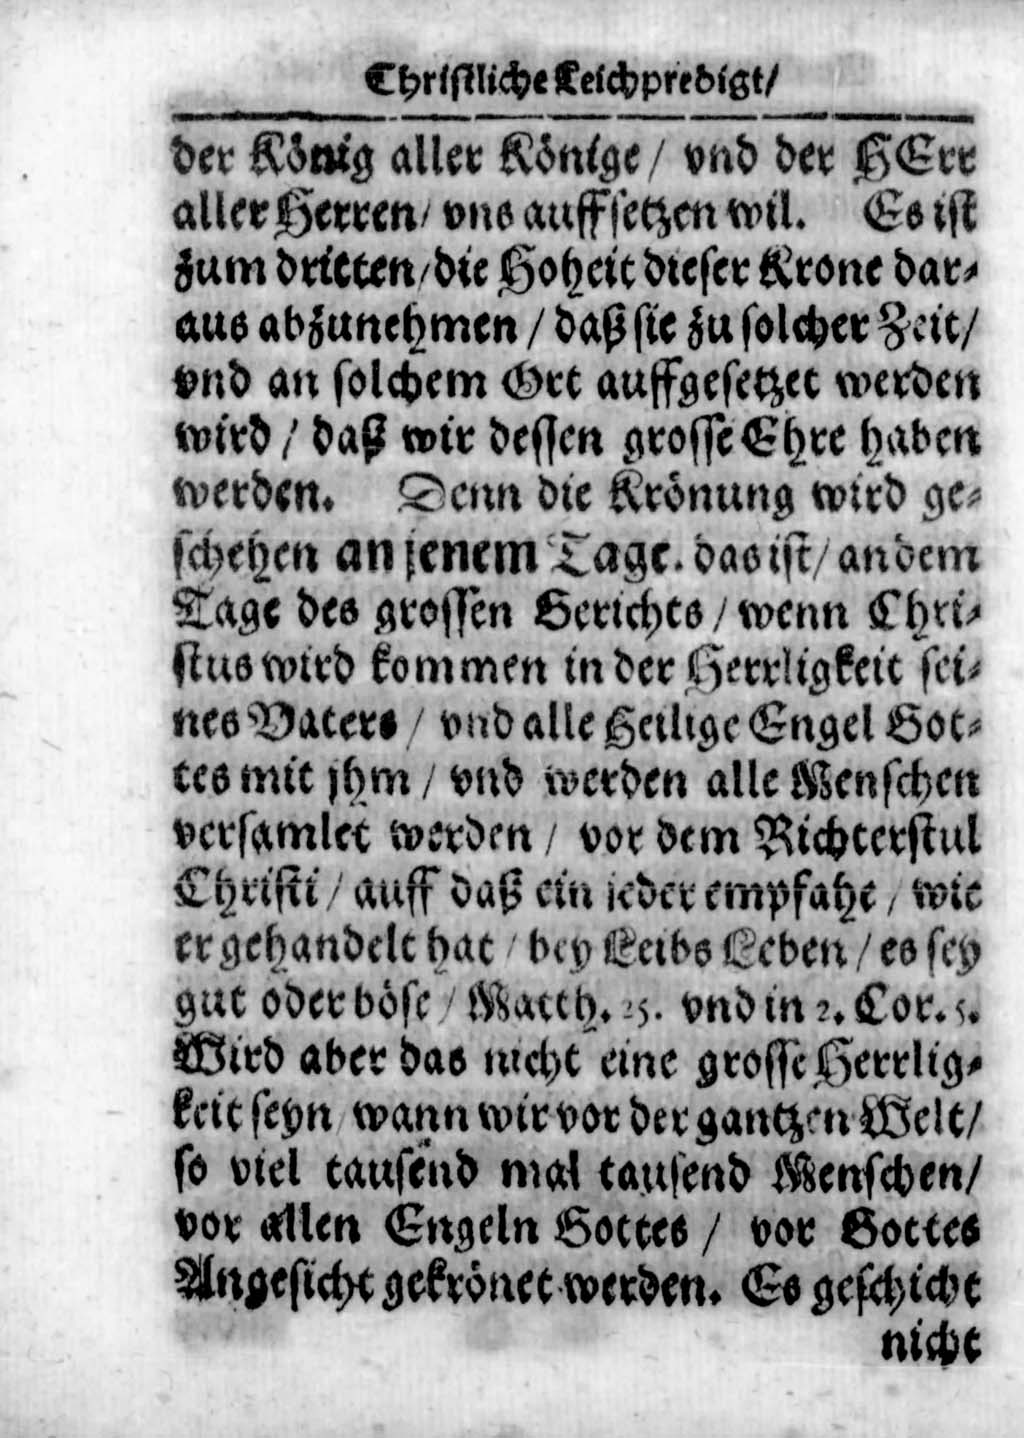 Christliche Leichpredigt/
der König aller Könige/ vnd der HErr
aller Herren/ vns auffsetzen wil. Es ist
zum dritten/ die Hoheit dieser Krone dar-
aus abzunehmen/ daß sie zu solcher Zeit/
vnd an solchem Ort auffgesetzet werden
wird/ daß wir dessen grosse Ehre haben
werden. Denn die Krönung wird ge-
schehen an jenem Tage. das ist/ an dem
Tage des grossen Gerichts/ wenn Chri-
stus wird kommen in der Herrligkeit sei-
nes Vaters/ vnd alle Heilige Engel Got-
tes mit jhm/ vnd werden alle Menschen
versamlet werden/ vor dem Richterstul
Christi/ auff daß ein jeder empfahe/ wie
er gehandelt hat/ bey Leibs Leben/ es sey
gut oder böse/ Matth. 25. vnd in 2. Cor. 5.
Wird aber das nicht eine grosse Herrlig-
keit seyn/ wann wir vor der gantzen Welt/
so viel tausend mal tausend Menschen/
vor allen Engeln Gottes/ vor Gottes
Angesicht gekrönet werden. Es geschicht
nicht